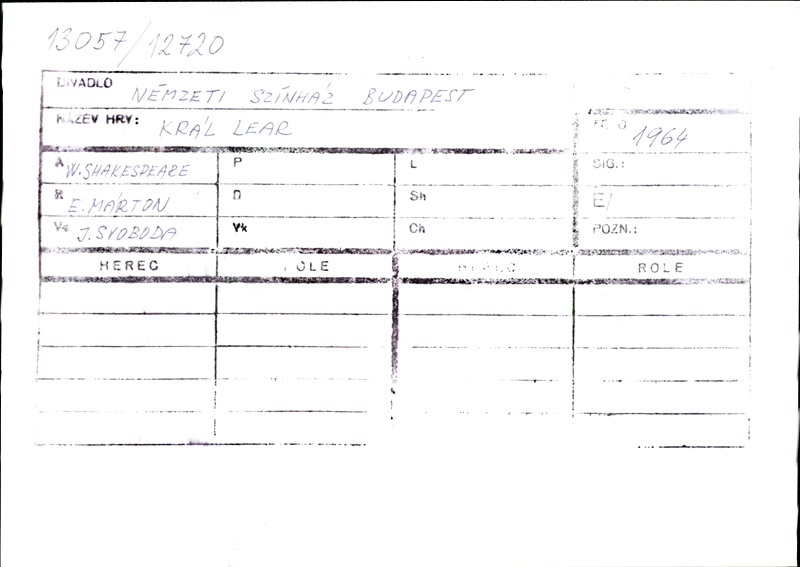 13057/12720
DIVADLO NÉMZETI SZÍNHÁZ BUDAPEST
NÁZEV HRY: KRÁL LEAR
1964
A W. SHAKESPEARE P L SIG.:
R E. MÁRTON D Sh E/
Vs J. SVOBODA Vk Ch POZN.:
HEREC ROLE HEREC ROLE